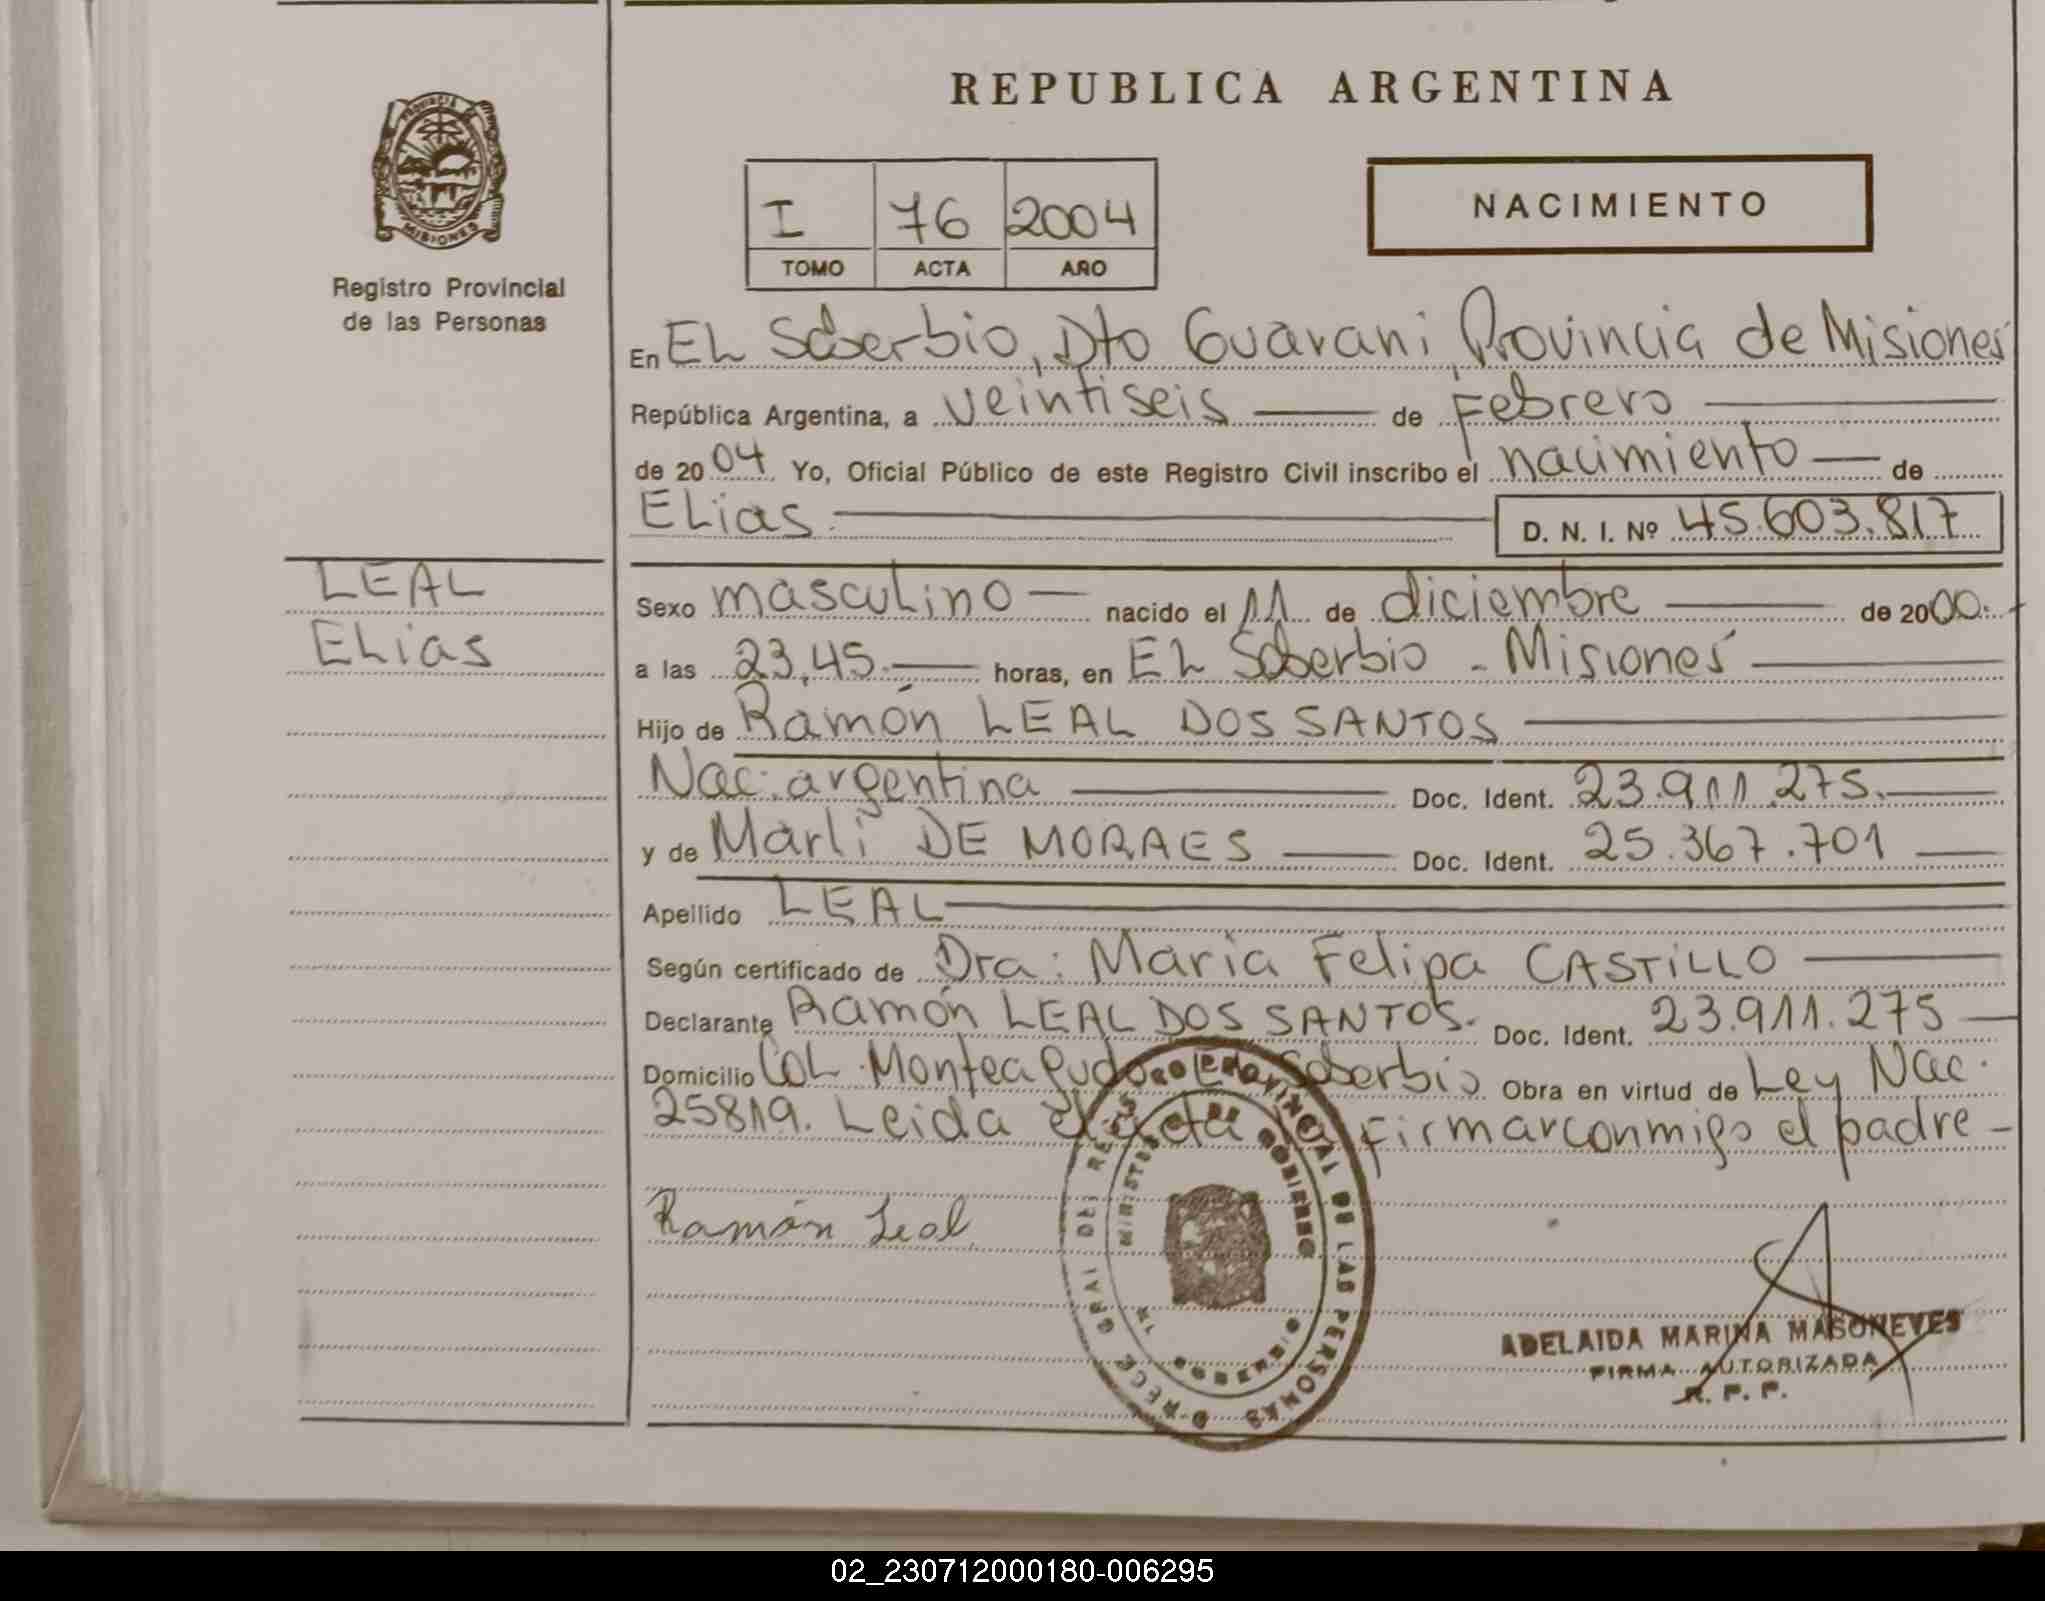 REPUBLICA ARGENTINA
PROVINCIA
MISIONES
Registro Provincial
de las Personas
I 76 2004
TOMO ACTA AÑO
NACIMIENTO
En EL Soberbio, Dto Guarani Provincia de Misiones
República Argentina, a veintiseis de Febrero
de 2004 Yo, Oficial Público de este Registro Civil inscribo el nacimiento de
ELias D. N. I. Nº 45.603.817
LEAL
ELias
Sexo masculino nacido el 11 de diciembre de 2000.
a las 23,45 horas, en EL Soberbio - Misiones
Hijo de Ramón LEAL DOS SANTOS
Nac. argentina Doc. Ident. 23.911.275.
y de Marli DE MORAES Doc. Ident. 25.367.701
Apellido LEAL
Según certificado de Dra: Maria Felipa CASTILLO
Declarante Ramón LEAL DOS SANTOS. Doc. Ident. 23.911.275
Domicilio COL. Monteagudo Soberbio Obra en virtud de Ley Nac.
25819. Leida el acta la firmar conmigo el padre
Ramón Leal
PROVINCIAL DE LAS PERSONAS
GOBIERNO
ADELAIDA MARINA MASONEVES
FIRMA AUTORIZADA
R. P. P.
02_230712000180-006295